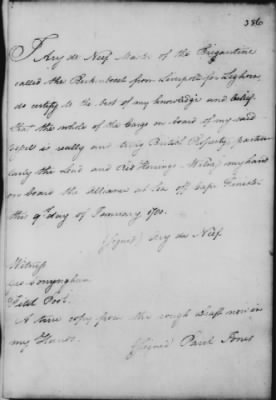 386
I Ary de Neef Master of the Brigantine
called the Berkenbosch from Liverpool for Leghorn,
do certify to the best of my knowledge and belief
that the whole of the Cargo on board of my said
vessel is really and truly British Property, particu
larly the Lead and Red Herrings. Witness my hand
on board the Alliance at Sea off Cape Finister
the 9th day of January 1780.
(Signed) Ary de Neef
Witness
Conyngham
A true copy from the rough draft now in
my Hands.
(Signed) Paul Jones